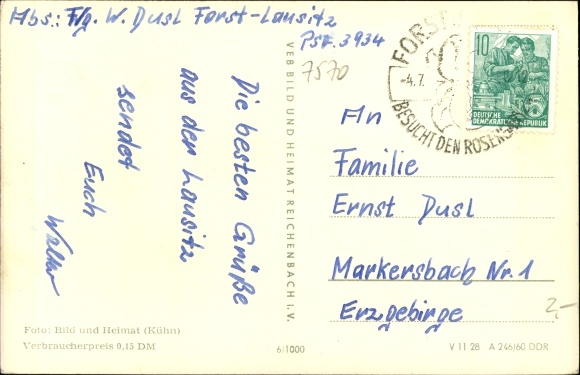 Abs.: Fw. W. Dusl Forst-Lausitz
PSF. 3934
7570
Die besten Grüße
aus der Lausitz
sendet
Euch
Walter
VEB BILD UND HEIMAT REICHENBACH I. V.
FORST
-4.7.
BESUCHT DEN ROSEN
10
DEUTSCHE
DEMOKRATISCHE REPUBLIK
An
Familie
Ernst Dusl
Markersbach Nr. 1
Erzgebirge
2,-
Foto: Bild und Heimat (Kühn)
Verbraucherpreis 0,15 DM
6/1000
V 11 28 A 246/60 DDR